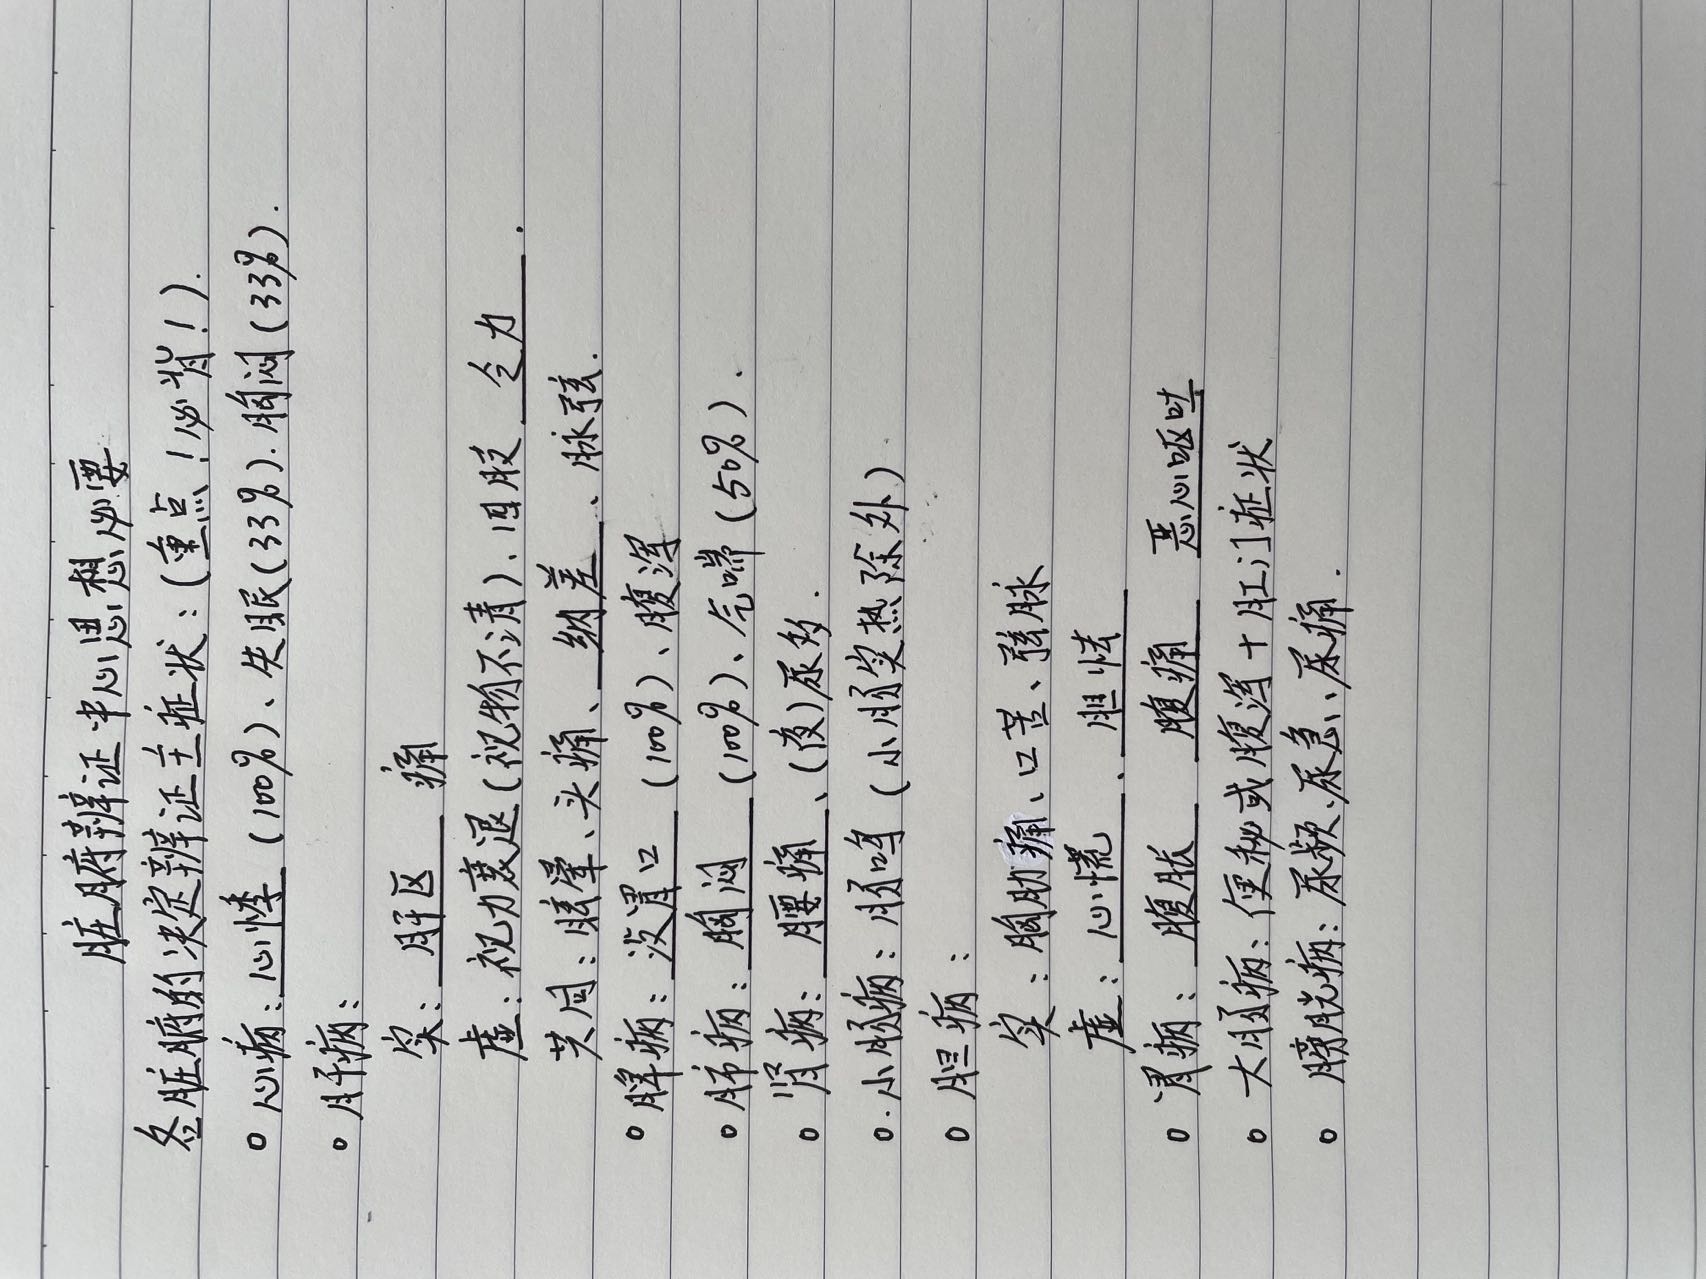 脏腑辨证中心思想必要
各脏腑的决定辨证主症状：(重点！必背！).
o 心病：心悸 (100%)、失眠(33%).胸闷(33%).
o 肝病：
实：肝区 痛
虚：视力衰退(视物不清)、四肢 乏力 .
共同：眩晕、头痛、纳差 、脉弦.
o 脾病：没胃口 (100%)、腹泻
o 肺病：胸闷 (100%)、气喘 (50%) .
o 肾病：腰痛、(夜)尿多.
o 小肠病：肠鸣 (小肠实热除外)
o 胆病：
实：胸肋痛、口苦、弦脉
虚：心慌 、胆怯
o 胃病：腹胀 腹痛 恶心呕吐
o 大肠病：便秘或腹泻+肛门症状
o 膀胱病：尿频、尿急、尿痛.